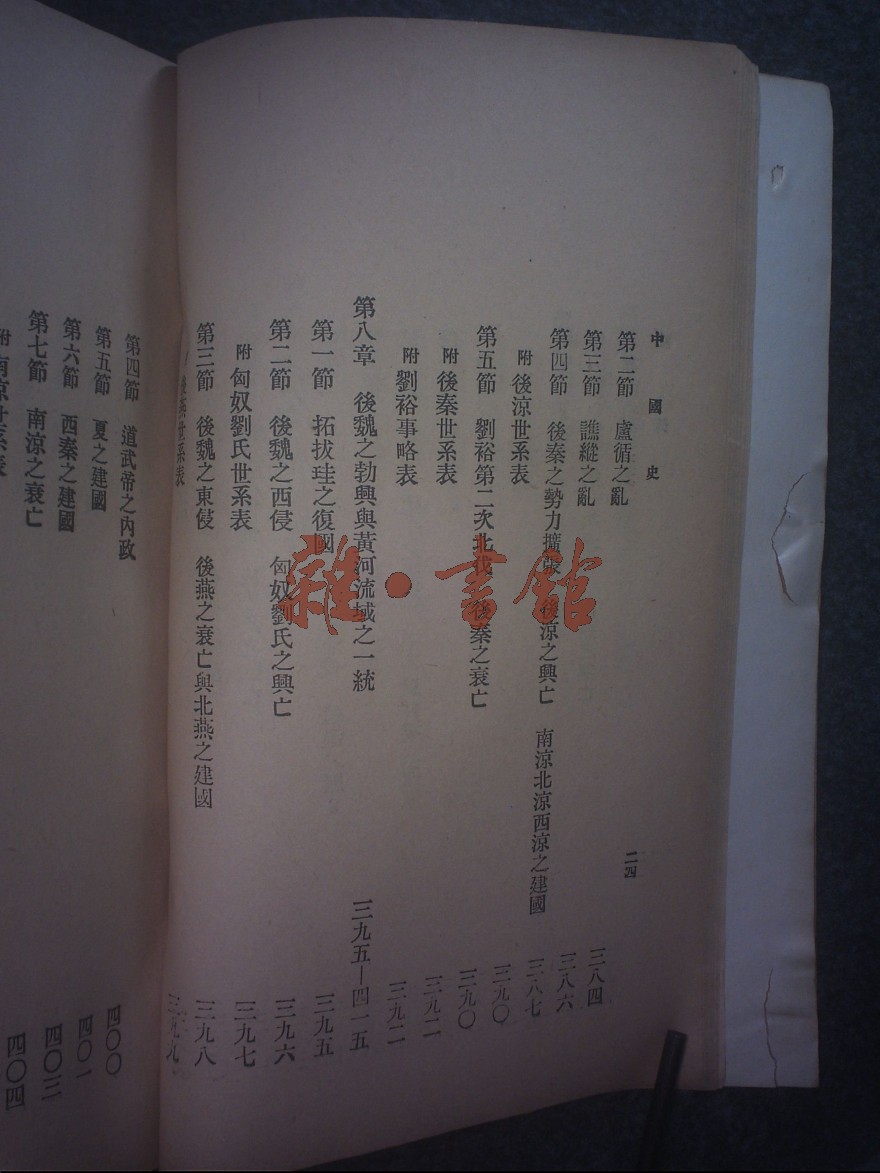 中國史
二四
第二節 盧循之亂 三八四
第三節 譙縱之亂 三八六
第四節 後秦之勢力擴張 後涼之興亡 南涼北涼西涼之建國 三八七
附 後涼世系表 三九〇
第五節 劉裕第二次北伐 後秦之衰亡 三九〇
附 後秦世系表 三九二
附 劉裕事略表 三九二
第八章 後魏之勃興與黃河流域之一統 三九五—四一五
第一節 拓拔珪之復國 三九五
第二節 後魏之西侵 匈奴劉氏之興亡 三九六
附 匈奴劉氏世系表 三九七
第三節 後魏之東侵 後燕之衰亡與北燕之建國 三九八
後燕世系表 三九九
第四節 道武帝之內政 四〇〇
第五節 夏之建國 四〇一
第六節 西秦之建國 四〇三
第七節 南涼之衰亡 四〇四
附 南涼世系表
雜·書館